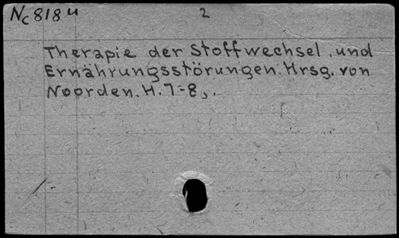 Nc818u 2
Therapie der Stoffwechsel. und
Ernährungsstörungen. Hrsg. von
Noorden. H. 7-8,.